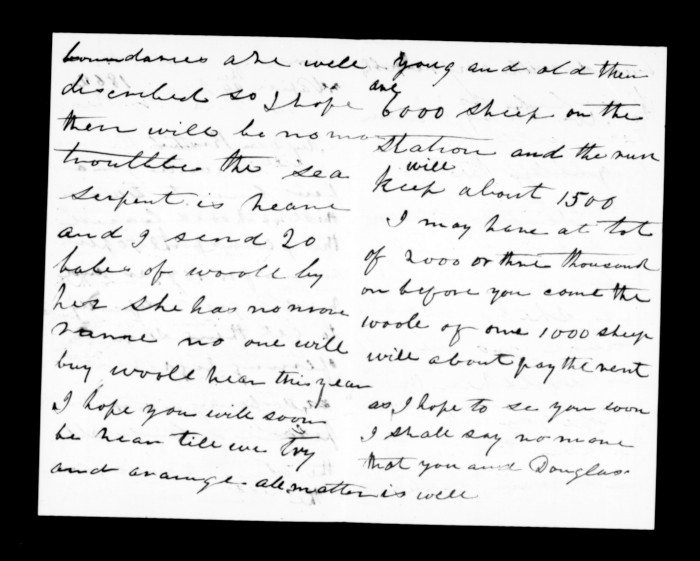 boundaries are well
discribed so I hope
then will be no more
trouttle the sea
serpent is heare
and I send 20
bales of wooll by
her she has no more
no one will
buy wooll hear this year
I hope you will soon
be hear till we try
and arange all matters
young and old then
are 6000 sheep on the
station and the run
will
keep about 1500
I may have at lot
of 2000 or three thousand
on before you come the
woole of one 1000 sheep
will about pay the rent
as I hope to se you soon
I shall say no more
that you and Douglas
is well